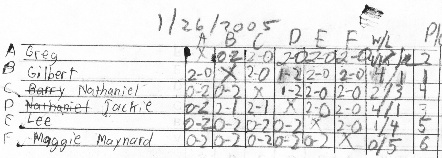 1/26/2005
A B C D E F W/L P/
A Greg X 0-2 2-0 2-0 2-0 2-0 2
B Gilbert 2-0 X 2-0 1-2 2-0 2-0 4/1 1
C Barry Nathaniel 0-2 0-2 X 1-2 2-0 2-0 2/3 4
D Nathaniel Jackie 0-2 2-1 2-1 X 2-0 2-0 4/1 3
E Lee 0-2 0-2 0-2 0-2 X 2-0 1/4 5
F Maggie Maynard 0-2 0-2 0-2 0-2 0-2 X 0/5 6